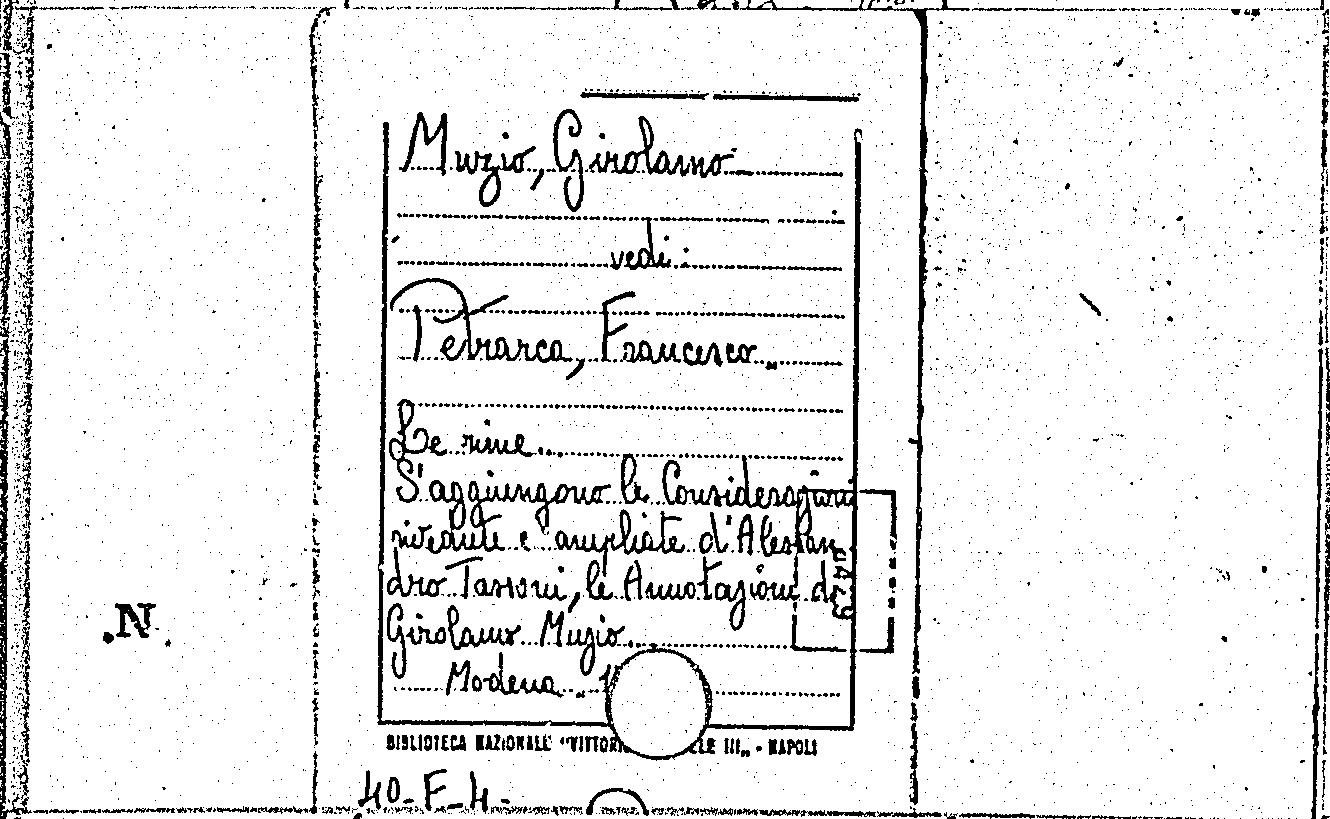 Muzio, Girolamo
vedi:
Petrarca, Francesco
Le rime...
S'aggiungono le Considerazioni
rivedute e ampliate d'Alessan
dro Tassoni, le Annotazioni di
Girolamo Muzio...
Modena
.N.
BIBLIOTECA NAZIONALE "VITTORIO ELE III" - NAPOLI
40-F-4-